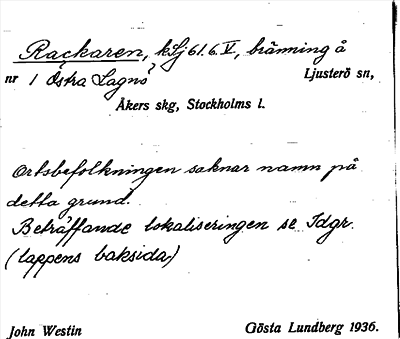 Rackaren, kSj 61.6.V, bränning å
nr 1 Östra Lagnö, Ljusterö sn,
Åkers skg, Stockholms l.
Ortsbefolkningen saknar namn på
detta grund.
Beträffande lokaliseringen se Idgr.
(lappens baksida)
John Westin Gösta Lundberg 1936.